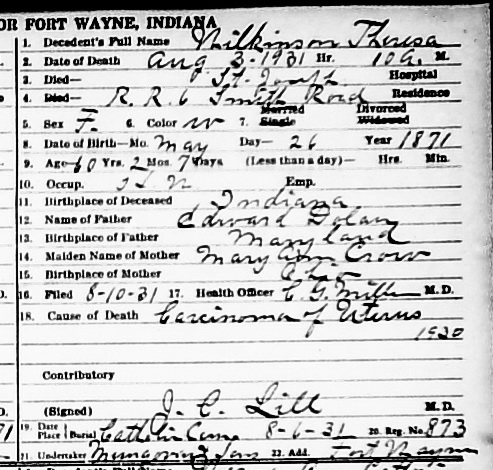 OR FORT WAYNE, INDIANA
1. Decedent's Full Name Wilkinson Theresa
2. Date of Death Aug 3-1931 Hr. 10 a. M.
3. Died— St. Joseph Hospital
4. Died— R. R. 6 Smith Road Residence
5. Sex F. 6. Color W 7. Married Single Divorced Widowed
8. Date of Birth—Mo. May Day— 26 Year 1871
9. Age 60 Yrs. 2 Mos. 7 Days (Less than a day)— Hrs. Min.
10. Occup. Emp.
11. Birthplace of Deceased Indiana
12. Name of Father Edward Dolan
13. Birthplace of Father Maryland
14. Maiden Name of Mother Mary Ann Crow
15. Birthplace of Mother Ohio
D. 16. Filed 8-10-31 17. Health Officer C. G. Miller M. D.
18. Cause of Death Carcinoma of Uterus
1930
Contributory
D. (Signed) J. C. Lill M. D.
71 19. Date Place (Burial) Catholic Cem 8-6-31 20. Reg. No. 873
21. Undertaker Sons 22. Add. Fort Wayne